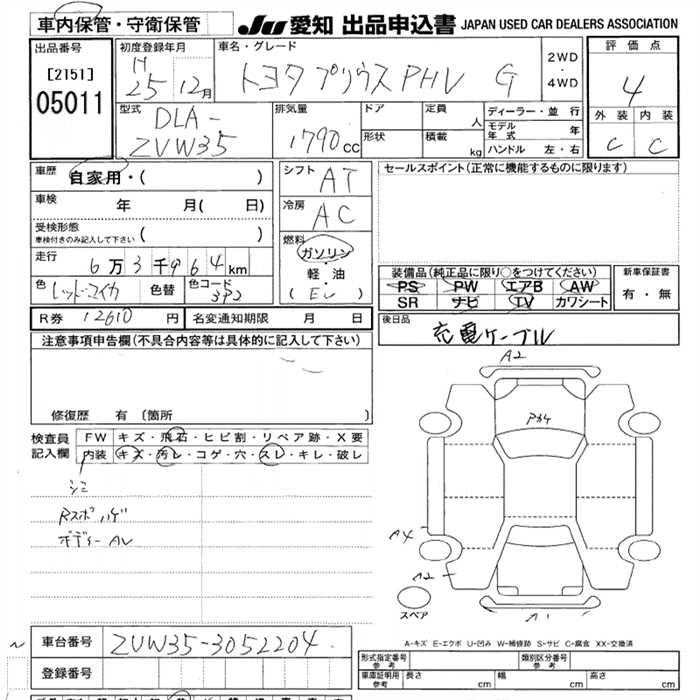 車内保管・守衛保管
JU 愛知 出品申込書 JAPAN USED CAR DEALERS ASSOCIATION
出品番号
[2151]
05011
初度登録年月
H
25 12月
車名・グレード
トヨタ プリウスPHV G
2WD
・
4WD
評価点
4
外装 内装
C C
型式
DLA-
ZVW35
排気量
1790cc
ドア
形状
定員 人
積載 kg
ディーラー・並行
モデル年式 年
ハンドル 左・右
車歴 自家用・( )
車検 年 月( 日)
受検形態
車検付きのみ記入して下さい ( )
走行 6万3千964km
色 レッドマイカ 色替 色コード 3P2
R券 12610 円 名変通知期限 月 日
シフト AT
冷房 AC
燃料
ガソリン
・
軽・油
(EV)
セールスポイント(正常に機能するものに限ります)
装備品(純正品に限り○をつけてください)
PS PW エアB AW
SR ナビ TV カワシート
新車保証書
有・無
後日品
充電ケーブル
注意事項申告欄(不具合内容等は具体的に記入して下さい)
修復歴 有 〔箇所
検査員記入欄
FW キズ・飛石・ヒビ割・リペア跡・X要
内装 キズ・汚レ・コゲ・穴・スレ・キレ・破レ
シミ
Rスポハゲ
ボディー AU
A2
A4
A2
A1
スペア
A-キズ E-エクボ U-凹み W-補修跡 S-サビ C-腐食 XX-交換済
車台番号 ZVW35-3052204
登録番号
形式指定番号 参考
類別区分番号 参考
車庫証明用 参考 長さ cm 幅 cm 高さ cm